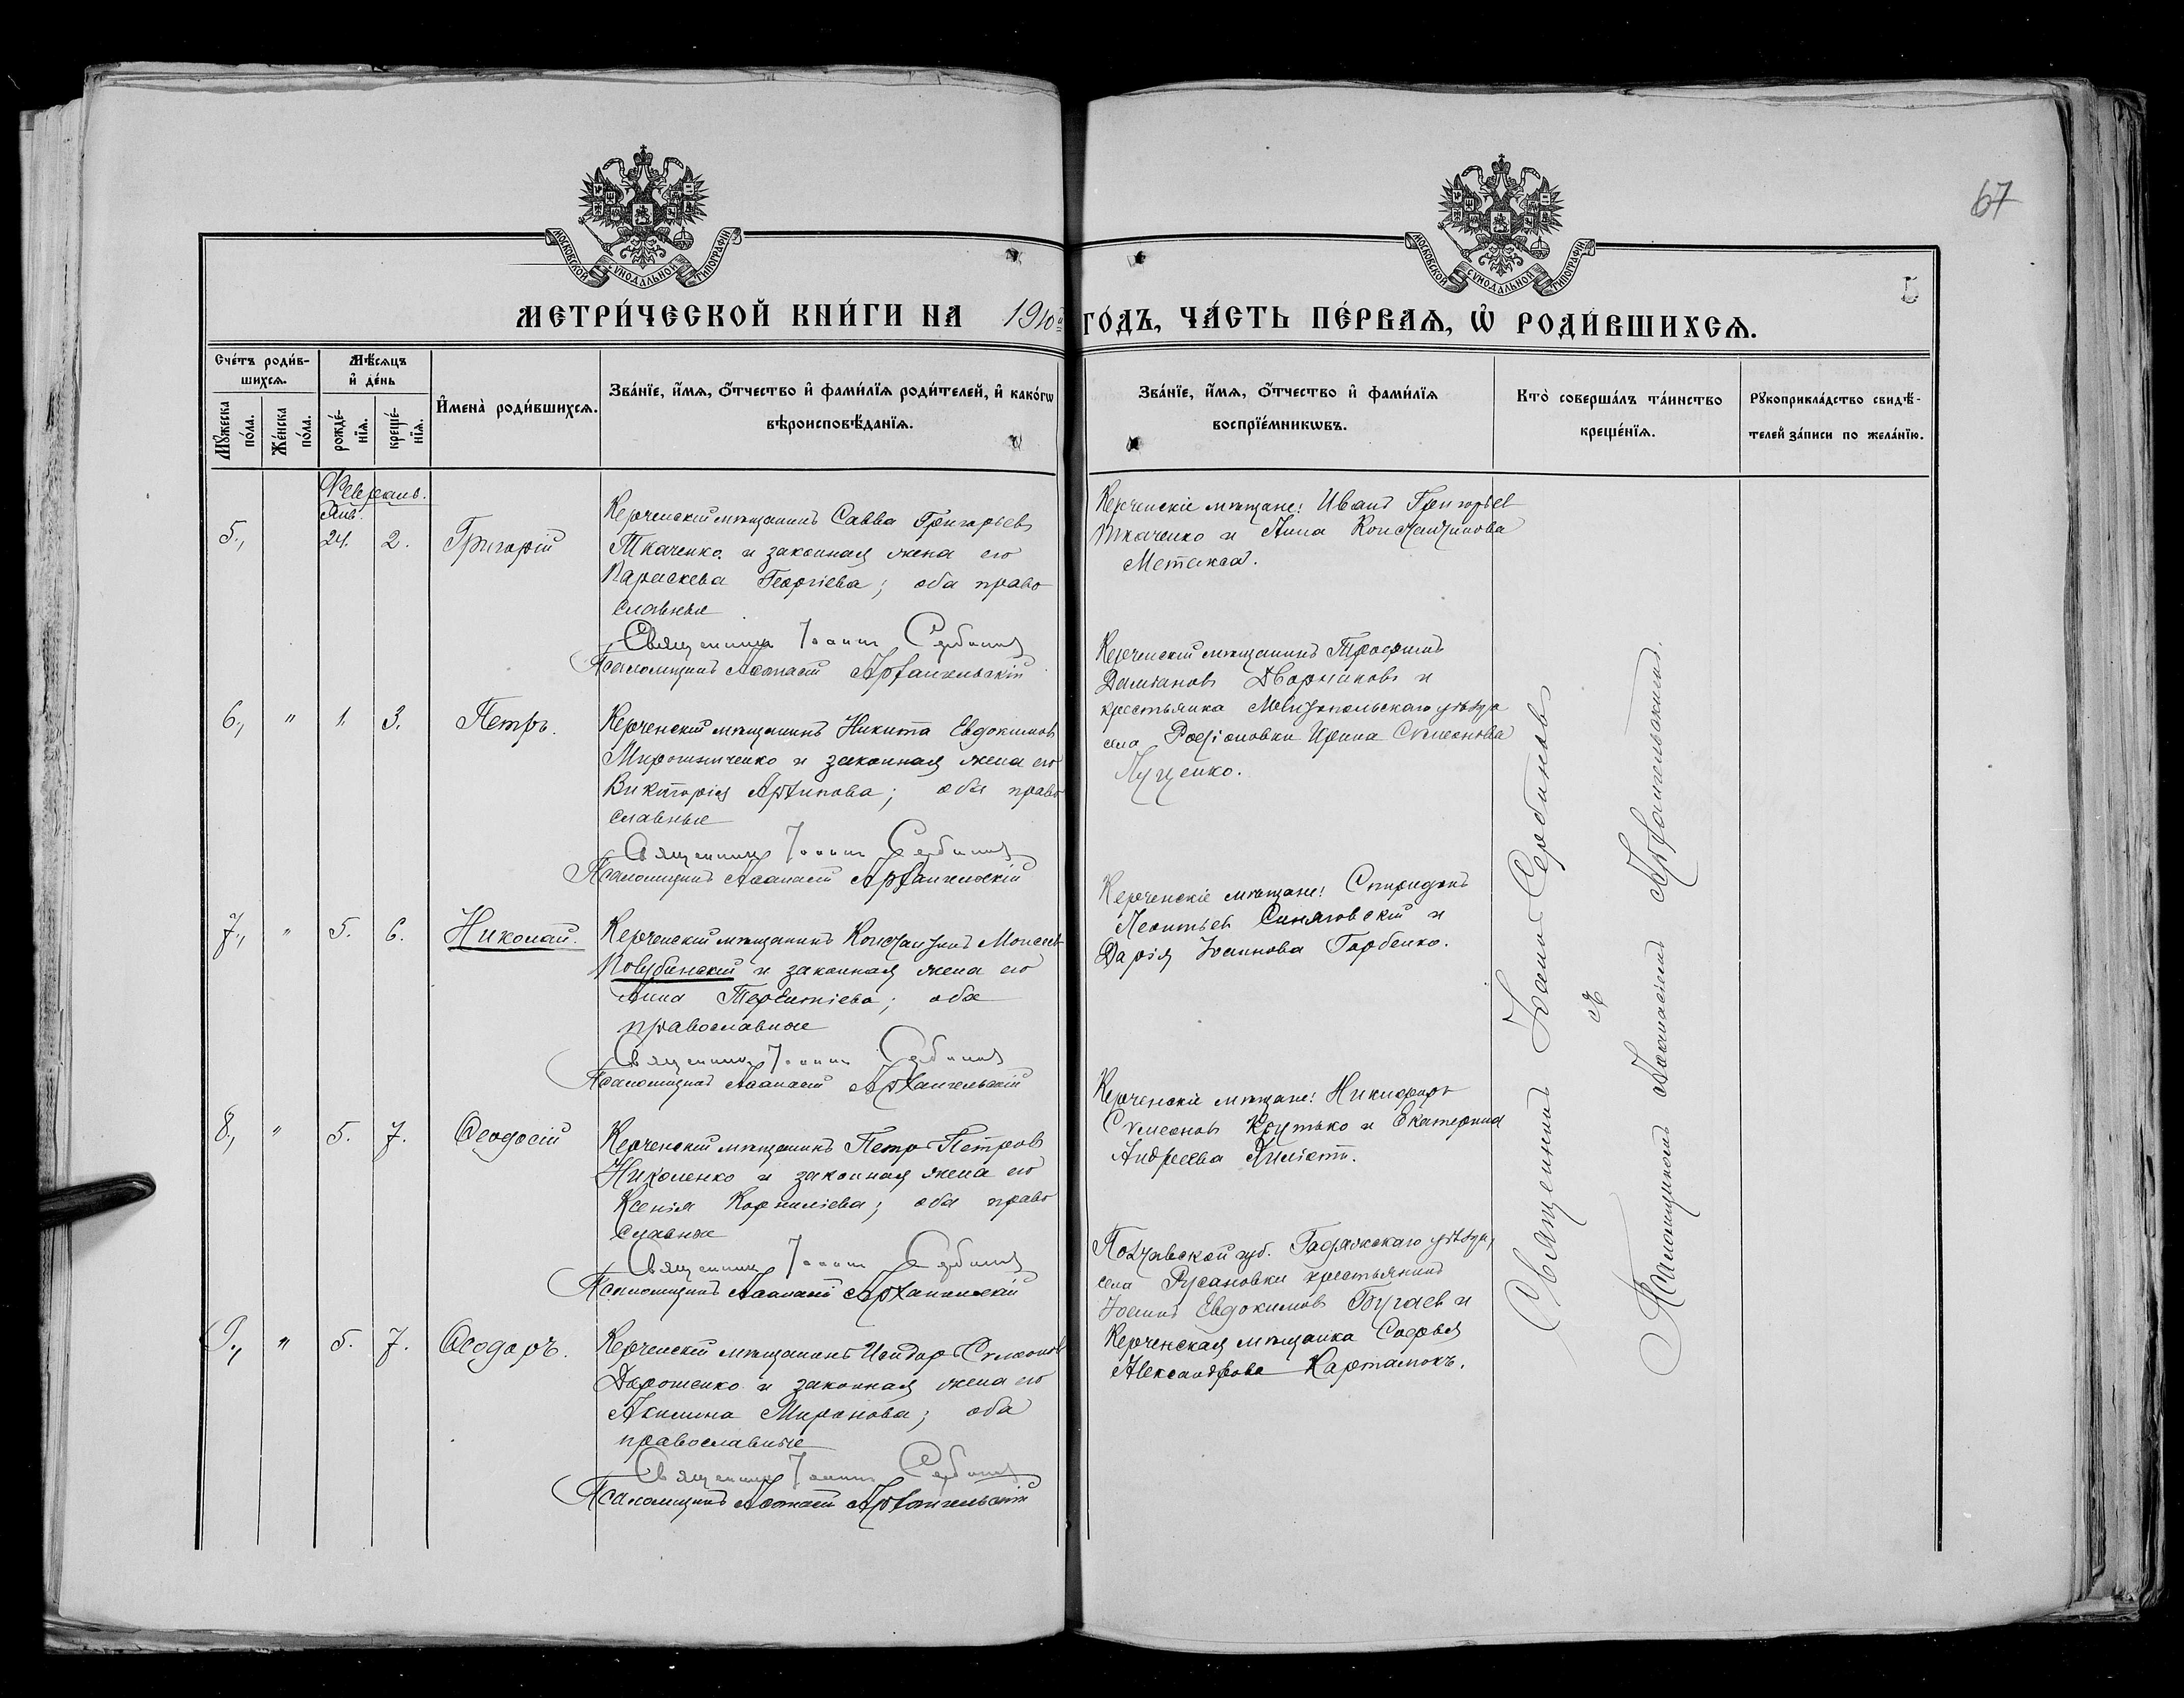 67
5
МОСКОВСКОЙ СѴНОДАЛЬНОЙ ТИПОГРАФІИ
МОСКОВСКОЙ СѴНОДАЛЬНОЙ ТИПОГРАФІИ
МЕТРИ́ЧЕСКОЙ КНИ́ГИ НА 1910й ГО́ДЪ, ЧА́СТЬ ПЕ́РВАѦ, Ѽ РОДИ́ВШИХСѦ.
Сче́тъ роди́в-
шихсѧ.
Мꙋ́жеска
по́ла.
Же́нска
по́ла.
Мѣ́сѧцъ
и҆ де́нь
рожде́-
нїѧ.
креще́-
нїѧ.
И҆мена̀ роди́вшихсѧ.
Зва́нїе, и҆́мѧ, ѻ҆́тчество и҆ фами́лїѧ роди́телей, и҆ како́гѡ
вѣроисповѣ́данїѧ.
Зва́нїе, и҆́мѧ, ѻ҆́тчество и҆ фами́лїѧ
воспрїе́мникѡвъ.
Кто̀ соверша́лъ та́инство
креще́нїѧ.
Рꙋкоприкла́дство свидѣ́-
телей за́писи по жела́нїю.
Февраль.
Янв.
5., 24. 2. Григорій
Керченскій мѣщанинъ Савва Григорьевъ
Ткаченко и законная жена его
Параскева Георгіева; оба право
славные
Священникъ Іоаннъ Сербиновъ
Псаломщикъ Аѳанасій Архангельскій
Керченскіе мѣщане: Иванъ Григорьев
Ткаченко и Анна Константинова
Метакса.
6., " 1. 3. Петръ.
Керченскій мѣщанинъ Никита Евдокимовъ
Мирошниченко и законная жена его
Викторія Архипова; оба право
славные
Священникъ Іоаннъ Сербиновъ
Псаломщикъ Аѳанасій Архангельскій
Керченскій мѣщанинъ Трофимъ
Даміановъ Дворниковъ и
крестьянка Мелитопольскаго уѣзда
села Родіоновки Ирина Сѵмеонова
Луценко.
7., " 5. 6. Николай.
Керченскій мѣщанинъ Константинъ Моисеев
Коцубинскій и законная жена его
Анна Терентіева; оба
православные
Священникъ Іоаннъ Сербиновъ
Псаломщикъ Аѳанасій Архангельскій
Керченскіе мѣщане: Спиридонъ
Леонтьев Синяговскій и
Дарія Іоаннова Горбенко.
8., " 5. 7. Ѳеодосій
Керченскій мѣщанинъ Петръ Петровъ
Николенко и законная жена его
Ксенія Корниліева; оба право
славные
Священникъ Іоаннъ Сербиновъ
Псаломщикъ Аѳанасій Архангельскій
Керченскіе мѣщане: Никифоръ
Сѵмеоновъ Крутько и Екатерина
Андреева
9., " 5. 7. Ѳеодоръ.
Керченскій мѣщанинъ Исидоръ Сѵмеонов
Дорошенко и законная жена его
Акилина Миронова; оба
православные
Священникъ Іоаннъ Сербиновъ
Псаломщикъ Аѳанасій Архангельскій
Полтавской губ. Гадячскаго уѣзда,
села Русановки крестьянинъ
Іоаннъ Евдокимовъ Бугаев и
Керченская мѣщанка Софья
Александрова Картамокъ.
Священникъ Іоаннъ Сербиновъ
и
Псаломщикомъ Аѳанасіемъ Архангельскимъ.